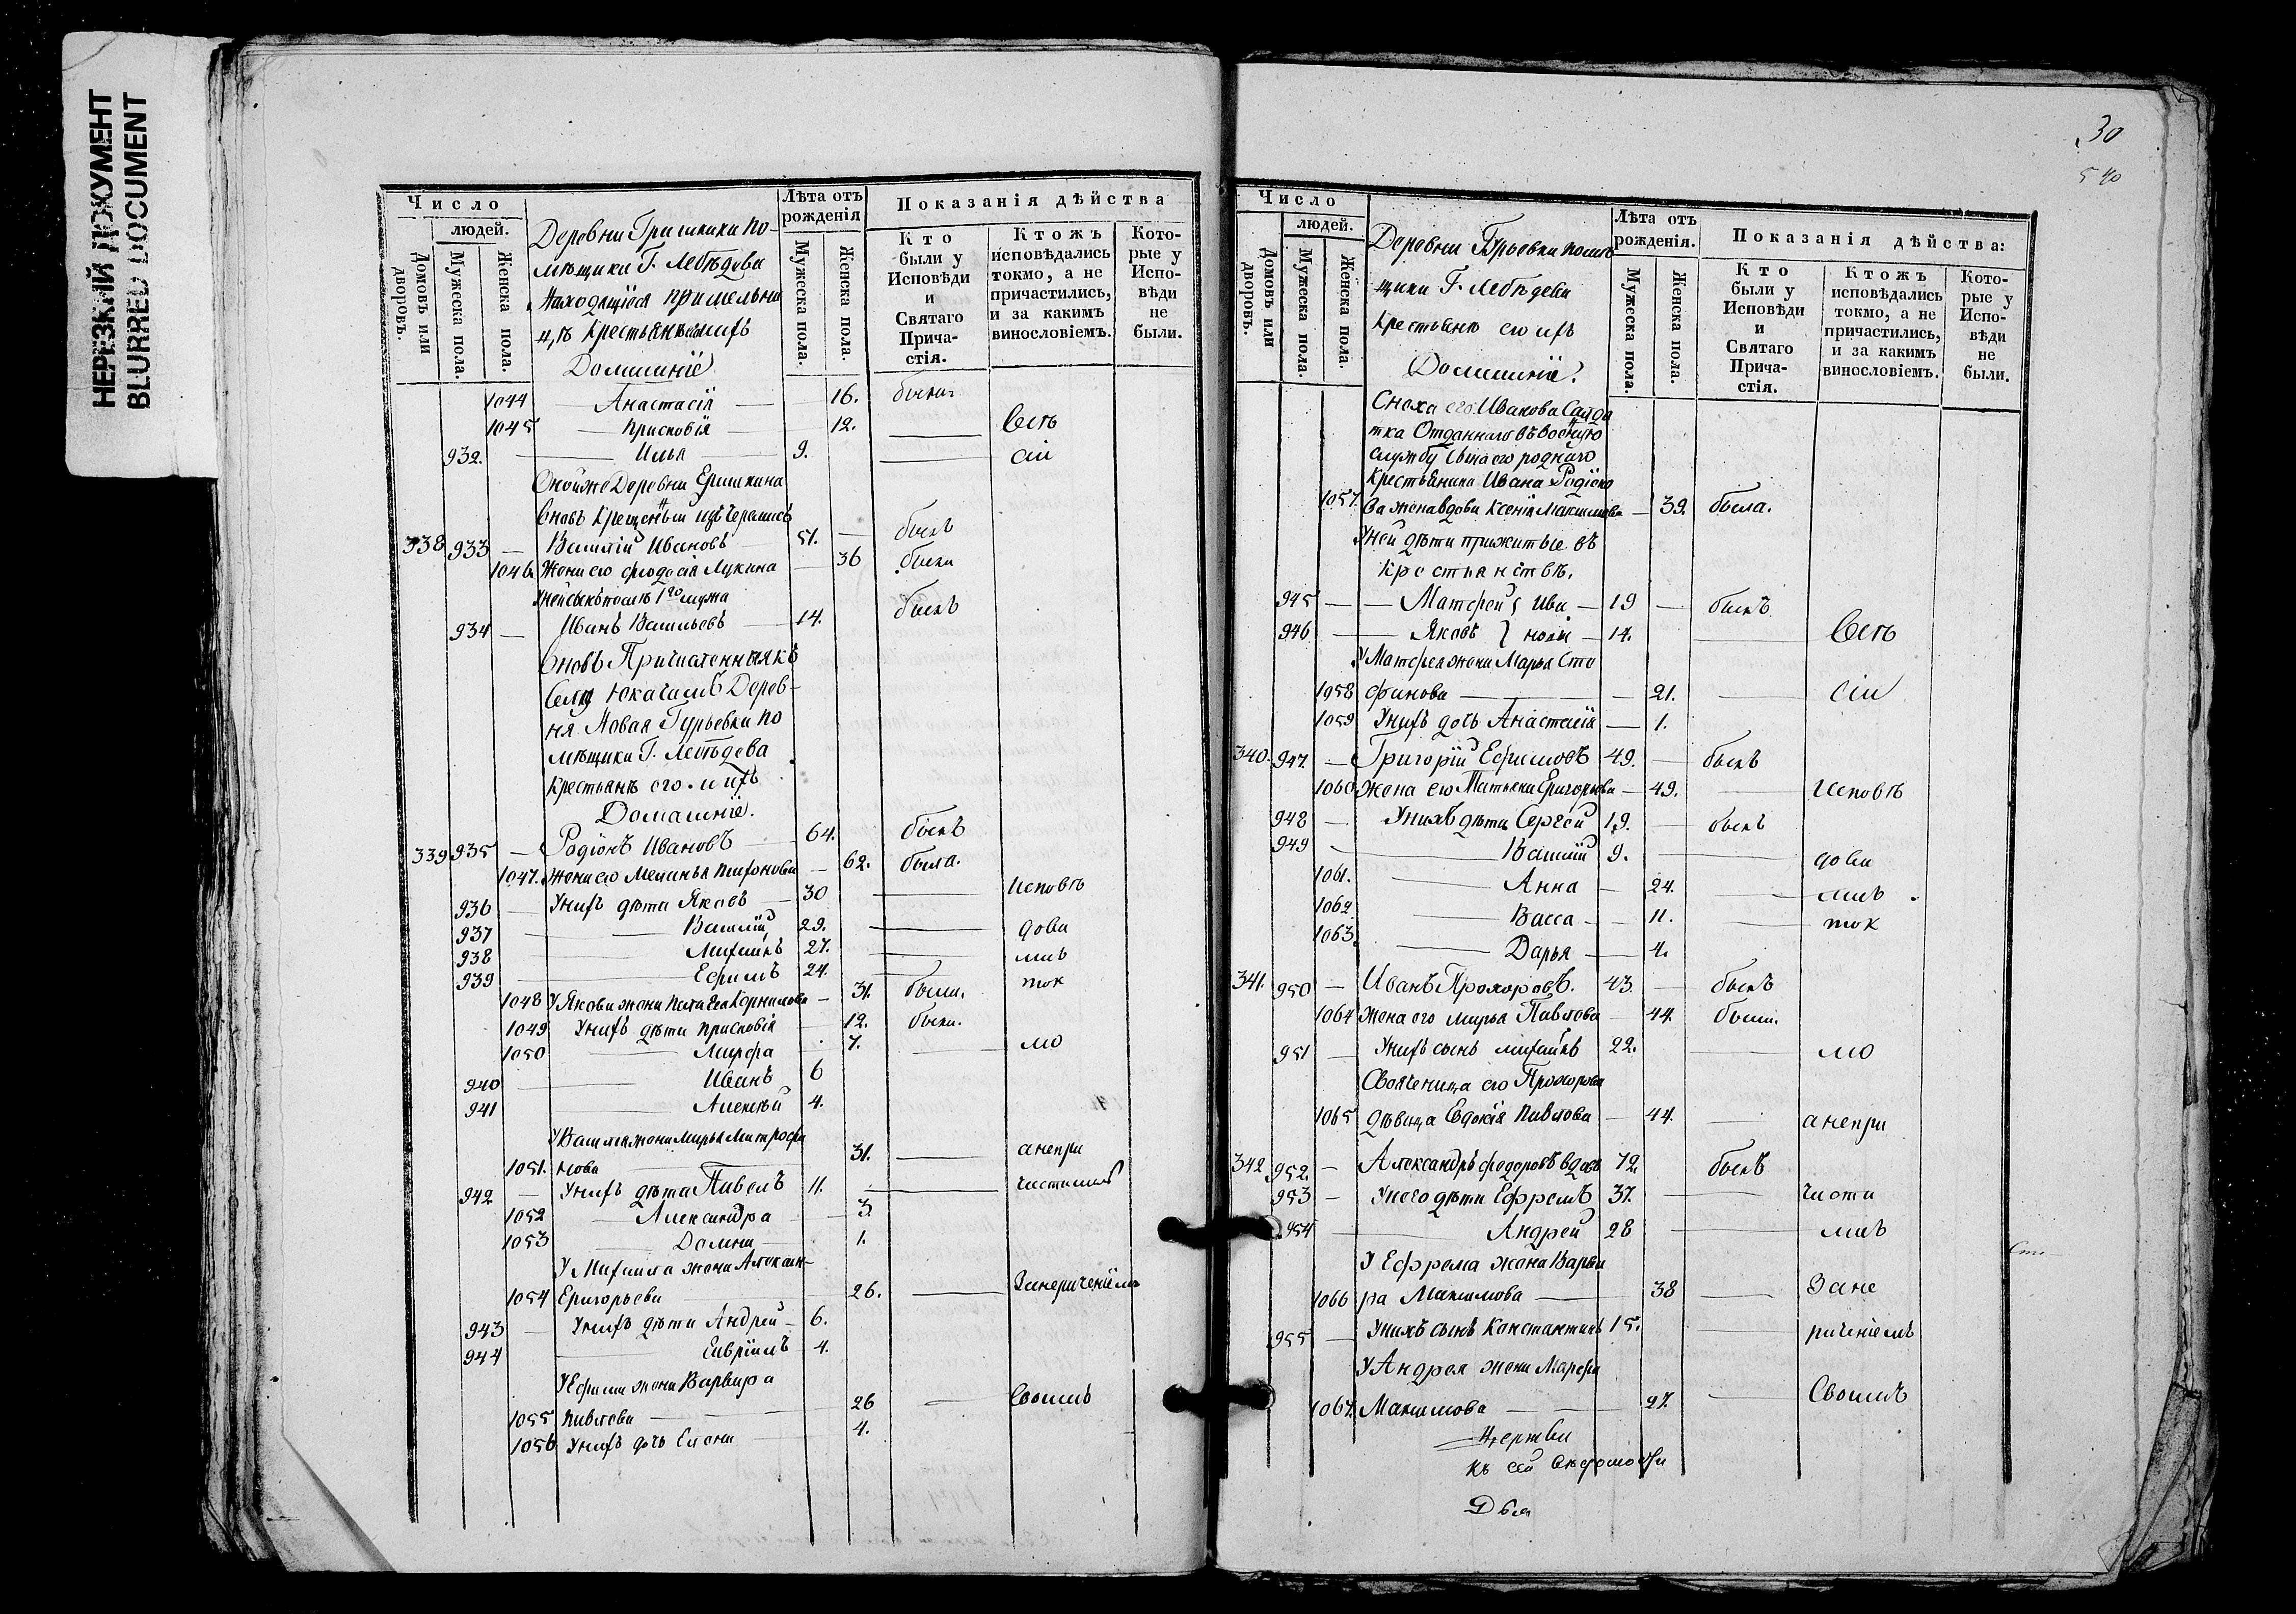 НЕРЕЗКИЙ ДОКУМЕНТ
BLURRED DOCUMENT
Число
людей.
Домовъ или дворовъ.
Мужеска пола.
Женска пола.
Деревни Гришкина по-
мѣщика Г. Лебѣдева
Находящіеся при мельни
цѣ Крестьянъ
Домашніе
Лѣта отъ рожденія
Мужеска пола.
Женска пола.
Показанія дѣйства
Кто были у Исповѣди и Святаго Прича-стія.
Ктожъ исповѣдались токмо, а не причастились, и за какимъ винословіемъ.
Кото-рые у Испо-вѣди не были.
1044 Анастасія 16. были
1045 Прасковія 12. Всѣ
932. Илья 9. сіи
Оной же Деревни Гришкина
вновь Крещеный изъ Черемисъ
338 933 Василій Ивановъ 51. былъ
1046 Жена его Феодосія Лукина 36 была
У ней сынъ 1го мужа
934 Иванъ Васильевъ 14. былъ
Вновь Причисленныя къ
Селу Юкачамъ Дерев-
ня Новая Гурьевка по
мѣщика Г. Лебѣдева
Крестьянъ его и ихъ
Домашніе.
339 935 Радіонъ Ивановъ 64. былъ
1047. Жена его Меланья 62. была.
936 У нихъ дѣти Яковъ 30 исповѣ
937 Василій 29. дова
938 Михаилъ 27. лись
939 Ефимъ 24. ток
1048 У Якова жена Корнилова 31. была.
1049 У нихъ дѣти Прасковія 12. была.
1050 Марфа 7. мо
940 Иванъ 6
941 Алексѣй 4.
У Василья жена Марья Митрофа
1051. нова 31. а непри
942 У нихъ дѣти Павелъ 11. частились
1052 Александра 3.
1053 Домна 1.
У Михаила жена Алексан-
1054 Григорьева 26. Занереченіемъ
943 У нихъ дѣти Андрей 6.
944 Гавріилъ 4.
У Ефима жена Варвара
1055 Павлова 26 Своимъ
1056 У нихъ дочь Елена 4.
30
540
Число
людей.
Домовъ или дворовъ.
Мужеска пола.
Женска пола.
Деревни Гурьевки помѣ
щика Г. Лебѣдева
Крестьянъ его и ихъ
Домашніе.
Лѣта отъ рожденія.
Мужеска пола.
Женска пола.
Показанія дѣйства:
Кто были у Исповѣди и Святаго Прича-стія.
Ктожъ исповѣдались токмо, а не причастились, и за какимъ винословіемъ.
Кото-рые у Испо-вѣди не были.
Сноха его Иванова Салда
тка Отданнаго въ военную
службу сына его роднаго
крестьянина Ивана Радіоно
1057. ва жена вдова Ксенія Максимова 39. была.
У ней дѣти прижитые въ
крестьянствѣ.
945 Матфей Ива 19 былъ
946 Яковъ новы 14. Всѣ
У Матфея жена Марья Сте
1058 фанова 21. сіи
1059 У нихъ дочь Анастасія 1.
340. 947. Григорій Ефимовъ 49. былъ
1060 Жена его Татьяна Григорьева 49. Исповѣ
948 У нихъ дѣти Сергей 19. былъ
949 Василій 9. дова
1061. Анна 24. лись
1062 Васса 11. ток
1063 Дарья 4.
341. 950 Иванъ Прохоровъ. 43. былъ
1064 Жена его Марья Павлова 44. была.
951 У нихъ сынъ Михаилъ 22. мо
Свояченица его Прохорова
1065 дѣвица Евдокія Павлова 44. а непри
342 952. Александръ Федоровъ вдовъ 72. былъ
953 У него дѣти Ефремъ 37. части
954 Андрей 28 лись
У Ефрема жена Варва
1066 ра Максимова 38 Зане
955 У нихъ сынъ Константинъ 15. реченіемъ
У Андрея жена Марфа
1067. Максимова 27. Своимъ
Церкви
къ сей вѣдомости
Дья